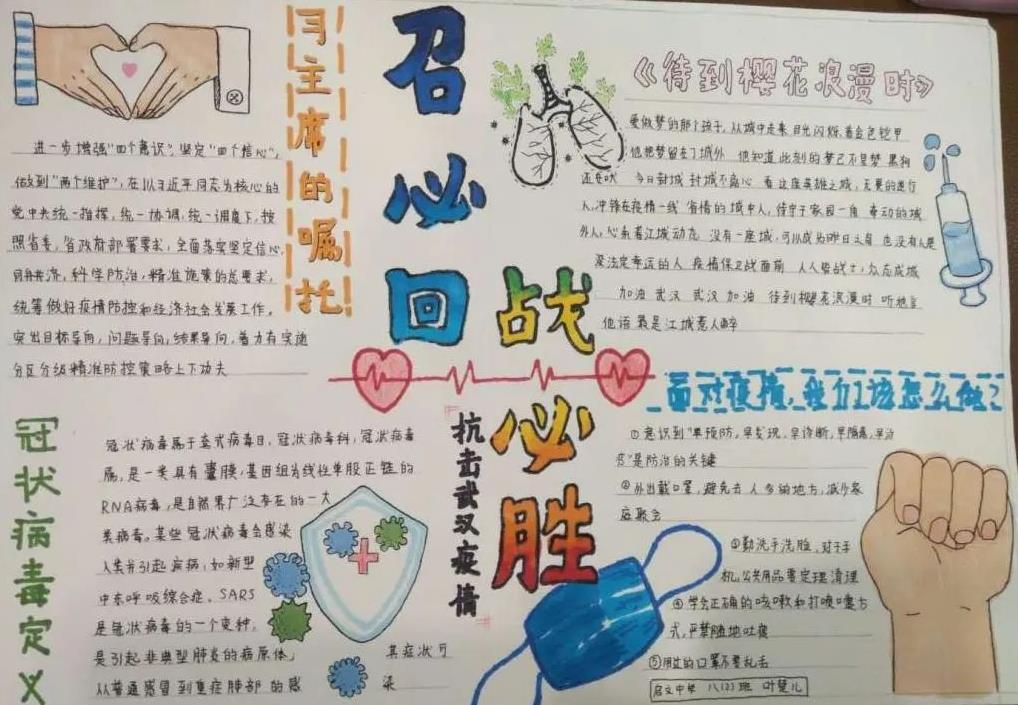 习主席的嘱托
进一步增强"四个意识",坚定"四个信心",
做到"两个维护",在以习近平同志为核心的
党中央统一指挥,统一协调,统一调度下,按
照省委,省政府部署要求,全面落实坚定信心,
同舟共济,科学防治,精准施策的总要求,
统筹做好疫情防控和经济社会发展工作,
突出目标导向,问题导向,结果导向,着力有实施
分区分级精准防控策略上下功夫
召必回
战必胜
抗击武汉疫情
《待到樱花浪漫时》
爱做梦的那个孩子,从城中走来 目光闪烁,着金色铠甲
他把梦留在了城外 他知道此刻的梦已不是梦 黑狗
还在吠 今日封城 封城不离心 看这座英雄之城,无畏的逆行
人,冲锋在疫情一线 省情的城中人,信守于家园一角 牵动的城
外人,心系着江城动态 没有一座城,可以成为昨日之岛 也没有人是
深法定幸运的人 疫情保卫战面前 人人皆战士,众志成城
加油 武汉 武汉 加油 待到樱花浪漫时 听
他语 最是江城惹人醉
面对疫情,我们该怎么做?
①意识到"早预防,早发现,早诊断,早隔离,早治
疗"是防治的关键
②外出戴口罩,避免去人多的地方,减少家
庭聚会
③勤洗手洗脸,对于手
机,公共用品要定理清理
④学会正确的咳嗽和打喷嚏方
式,严禁随地吐痰
⑤用过的口罩不要乱丢
启文中学 八(2)班 叶楚儿
冠状病毒定义
冠状病毒属于套式病毒目,冠状病毒科,冠状病毒
属,是一类具有囊膜,基因组为线性单股正链的
RNA病毒,是自然界广泛存在的一大
类病毒。某些冠状病毒会感染
人类并引起疾病,如新型
中东呼吸综合症、SARS
是冠状病毒的一个变种,
是引起非典型肺炎的病原体, 其症状可
从普通感冒到重症肺部的感 染